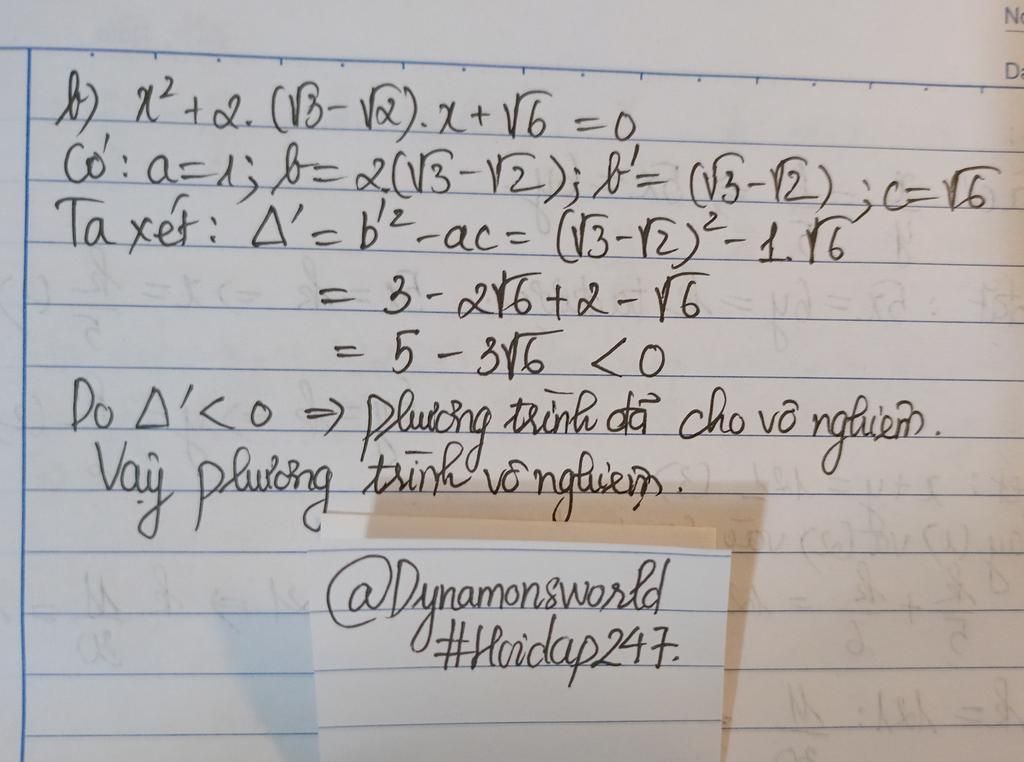 b) x² + 2.(√3 - √2).x + √6 = 0
Có: a = 1; b = 2(√3 - √2); b' = (√3 - √2); c = √6
Ta xét: Δ' = b'² - ac = (√3 - √2)² - 1.√6
= 3 - 2√6 + 2 - √6
= 5 - 3√6 < 0
Do Δ' < 0 ⇒ phương trình đã cho vô nghiệm.
Vậy phương trình vô nghiệm.
@Dynamonsworld
#Hoidap247.